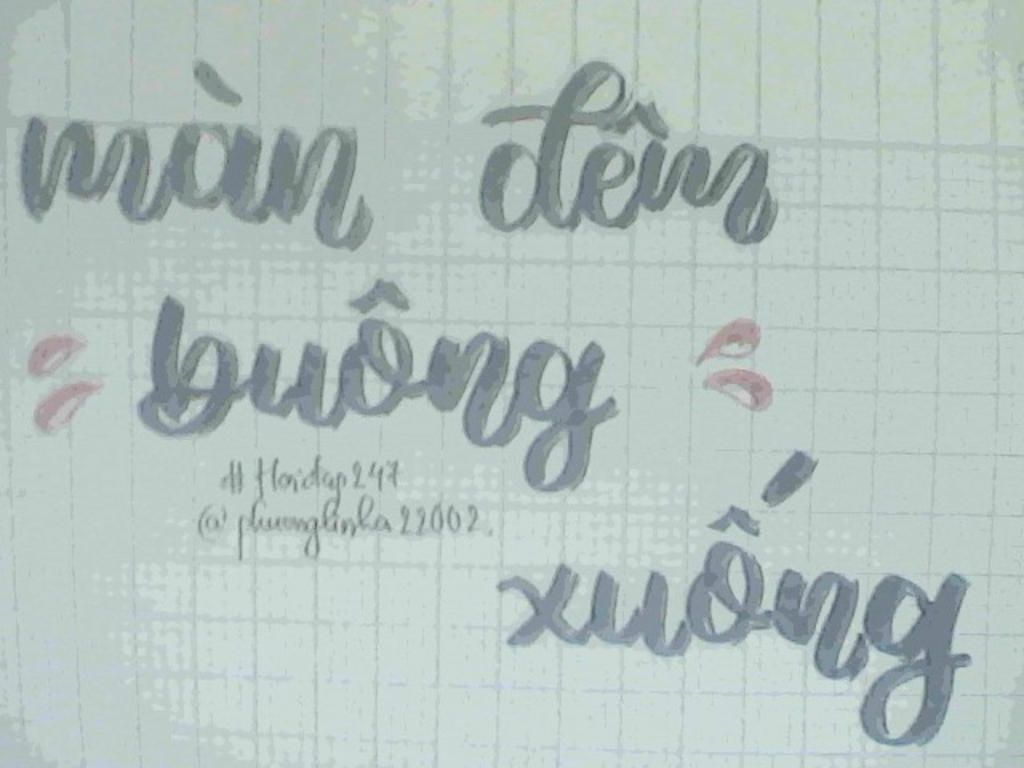 màn đêm
buông
# Hoidap247
@phuonglinha22002.
xuống